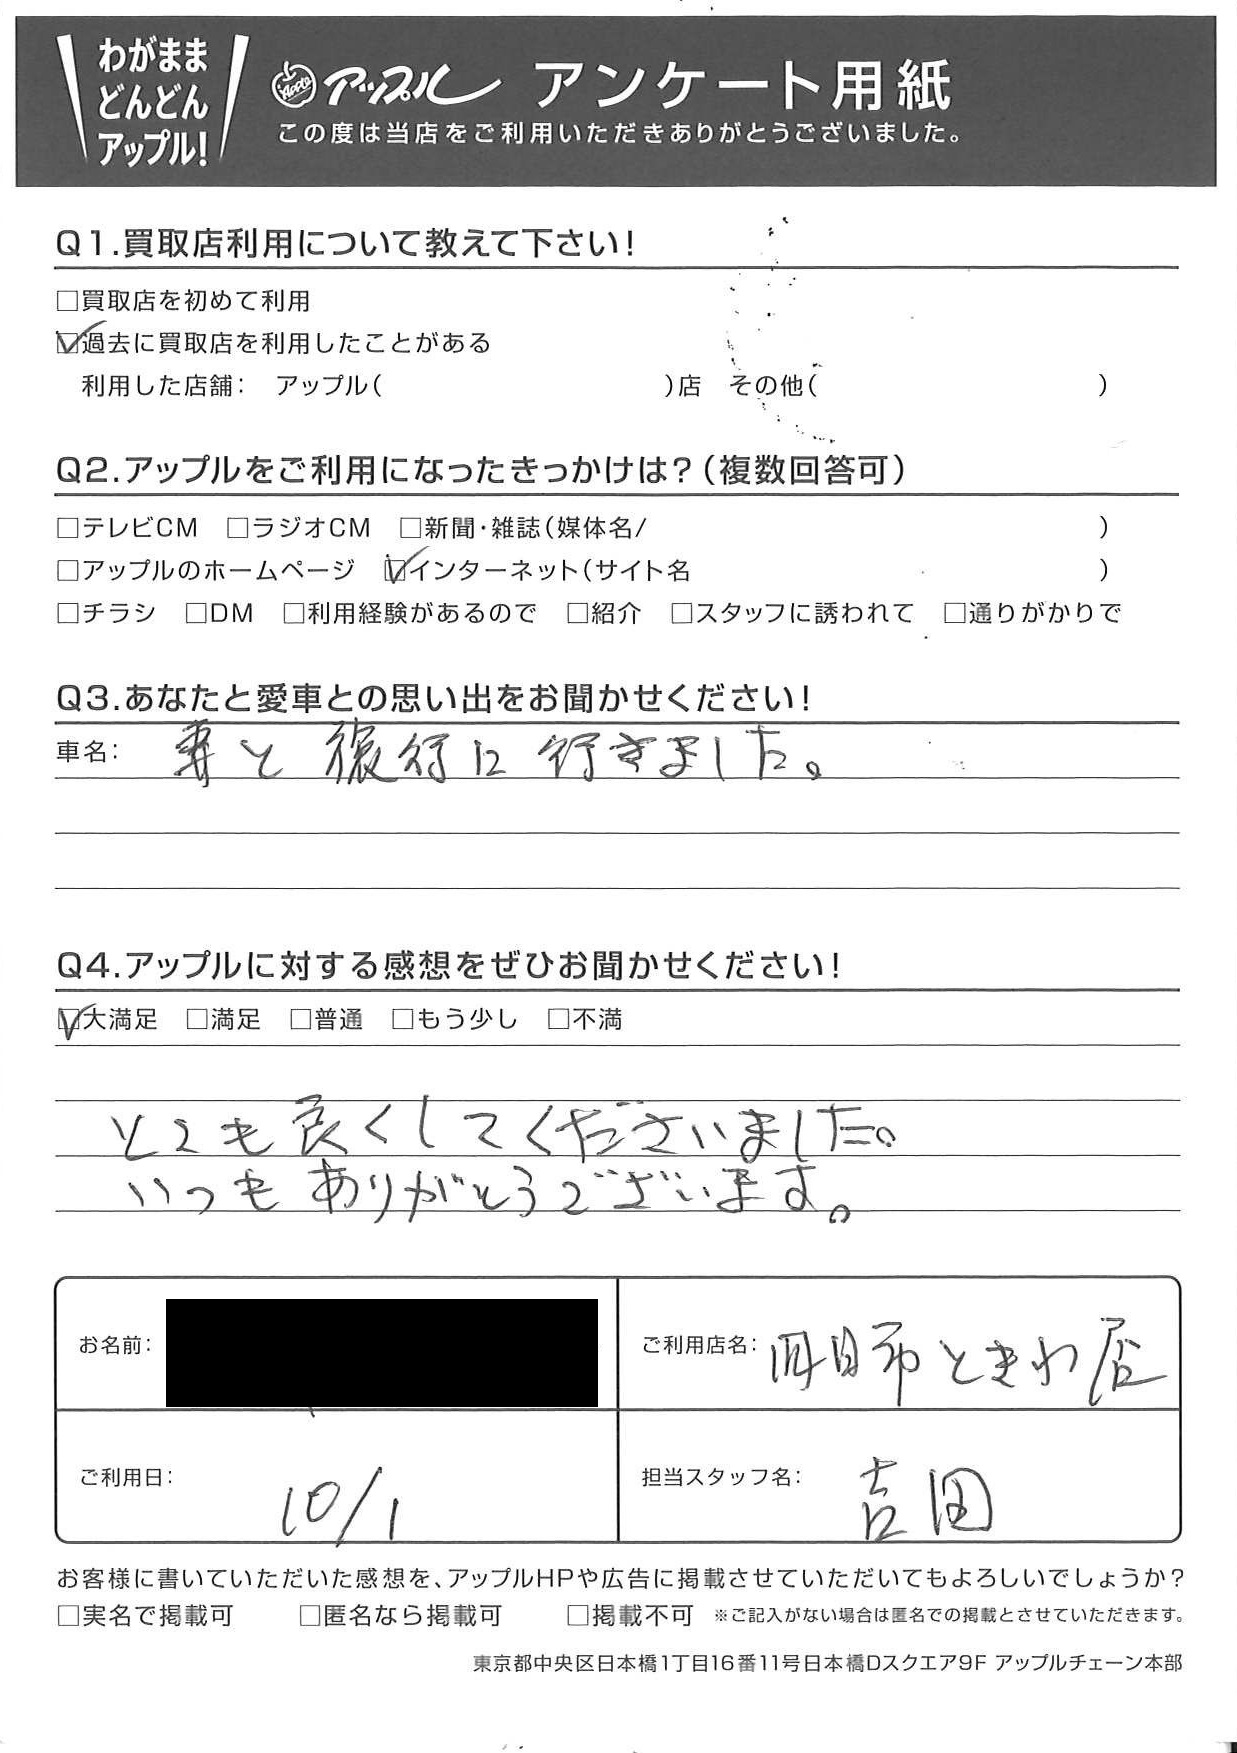 わがまま
どんどん
アップル!
Apple アップル アンケート用紙
この度は当店をご利用いただきありがとうございました。
Q1.買取店利用について教えて下さい!
□買取店を初めて利用
☑過去に買取店を利用したことがある
利用した店舗: アップル( )店 その他( )
Q2.アップルをご利用になったきっかけは?(複数回答可)
□テレビCM □ラジオCM □新聞・雑誌(媒体名/ )
□アップルのホームページ ☑インターネット(サイト名 )
□チラシ □DM □利用経験があるので □紹介 □スタッフに誘われて □通りがかりで
Q3.あなたと愛車との思い出をお聞かせください!
車名: 妻と旅行に行きました。
Q4.アップルに対する感想をぜひお聞かせください!
☑大満足 □満足 □普通 □もう少し □不満
とても良くしてくださいました。
いつもありがとうございます。
お名前:
ご利用店名: 四日市ときわ店
ご利用日: 10/1
担当スタッフ名: 吉田
お客様に書いていただいた感想を、アップルHPや広告に掲載させていただいてもよろしいでしょうか?
□実名で掲載可 □匿名なら掲載可 □掲載不可 ※ご記入がない場合は匿名での掲載とさせていただきます。
東京都中央区日本橋1丁目16番11号日本橋Dスクエア9F アップルチェーン本部